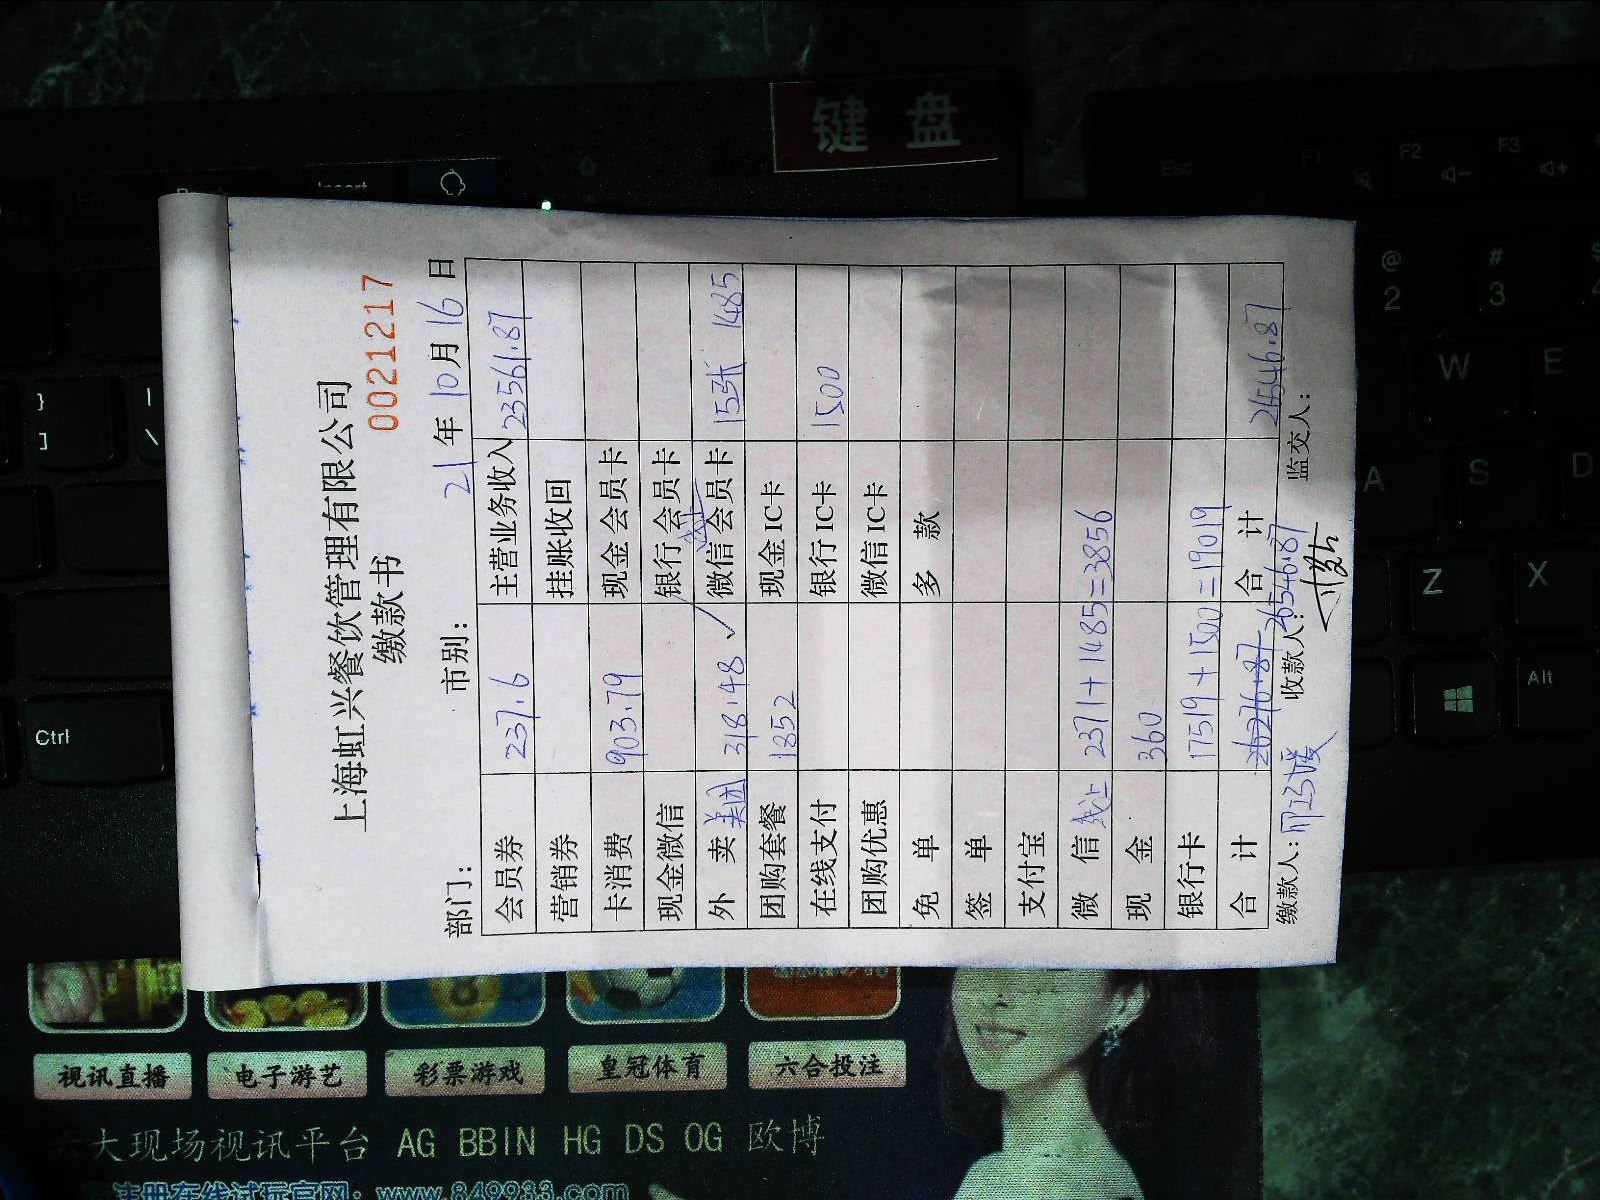 键 盘
上海虹兴餐饮管理有限公司
缴款书
0021217
部门： 市别： 21年10月16日
会员券 237.6 主营业务收入 23561.87
营销券 挂账收回
卡消费 903.79 现金会员卡
现金微信 银行会员卡
外 卖 美团 318.48 ✓ 微信会员卡 15张 1485
团购套餐 1852 现金IC卡
在线支付 银行IC卡 1500
团购优惠 微信IC卡
免 单 多 款
签 单
支付宝
微 信 线上 2371+1485=3856
现 金 360
银行卡 17519+1500=19019
合 计 26276.87 26546.87 合 计 26546.87
缴款人： 收款人： 监交人：
Insert
Esc
F1
F2
F3
@
2
#
3
W
E
A
S
D
Z
X
Alt
Ctrl
}
]
|
\
视讯直播 电子游艺 彩票游戏 皇冠体育 六合投注
六大现场视讯平台 AG BBIN HG DS OG 欧博
注册在线试玩官网：www.849933.com